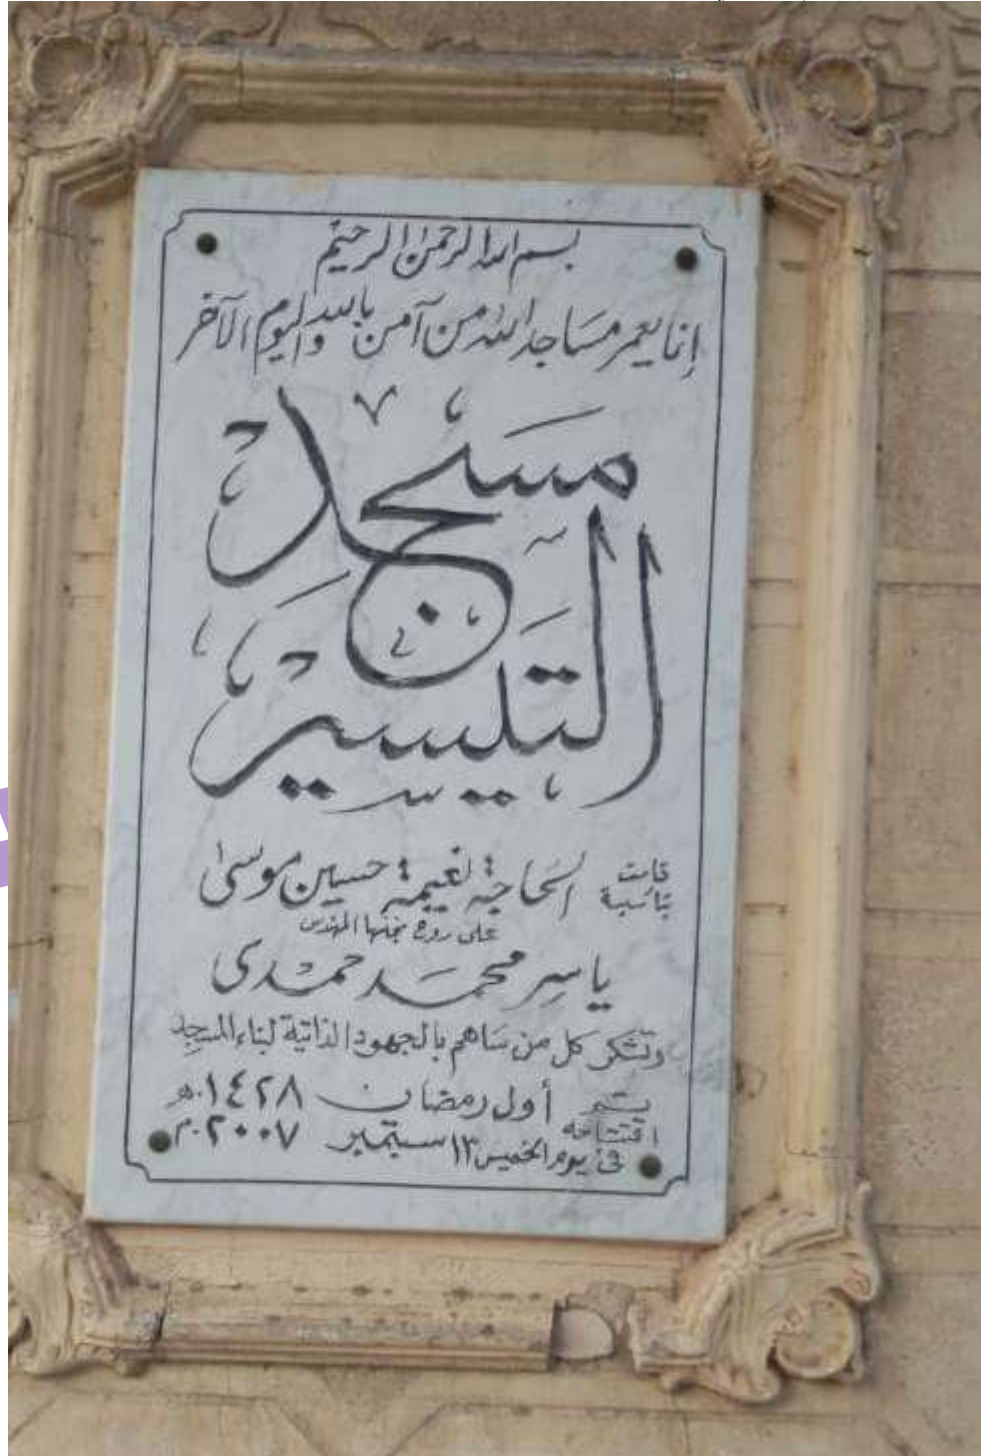 بسم الله الرحمن الرحيم
إنما يعمر مساجد الله من آمن بالله واليوم الآخر
مسجد
التيسير
قامت بتأسيسه الحاجة نعيمة حسين موسى
على روح نجلها المهندس
ياسر محمد حمدى
ونشكر كل من ساهم بالجهود الذاتية لبناء المسجد
افتتاحه أول رمضان ١٤٢٨ هـ
فى يوم الخميس ١٣ سبتمبر ٢٠٠٧ م